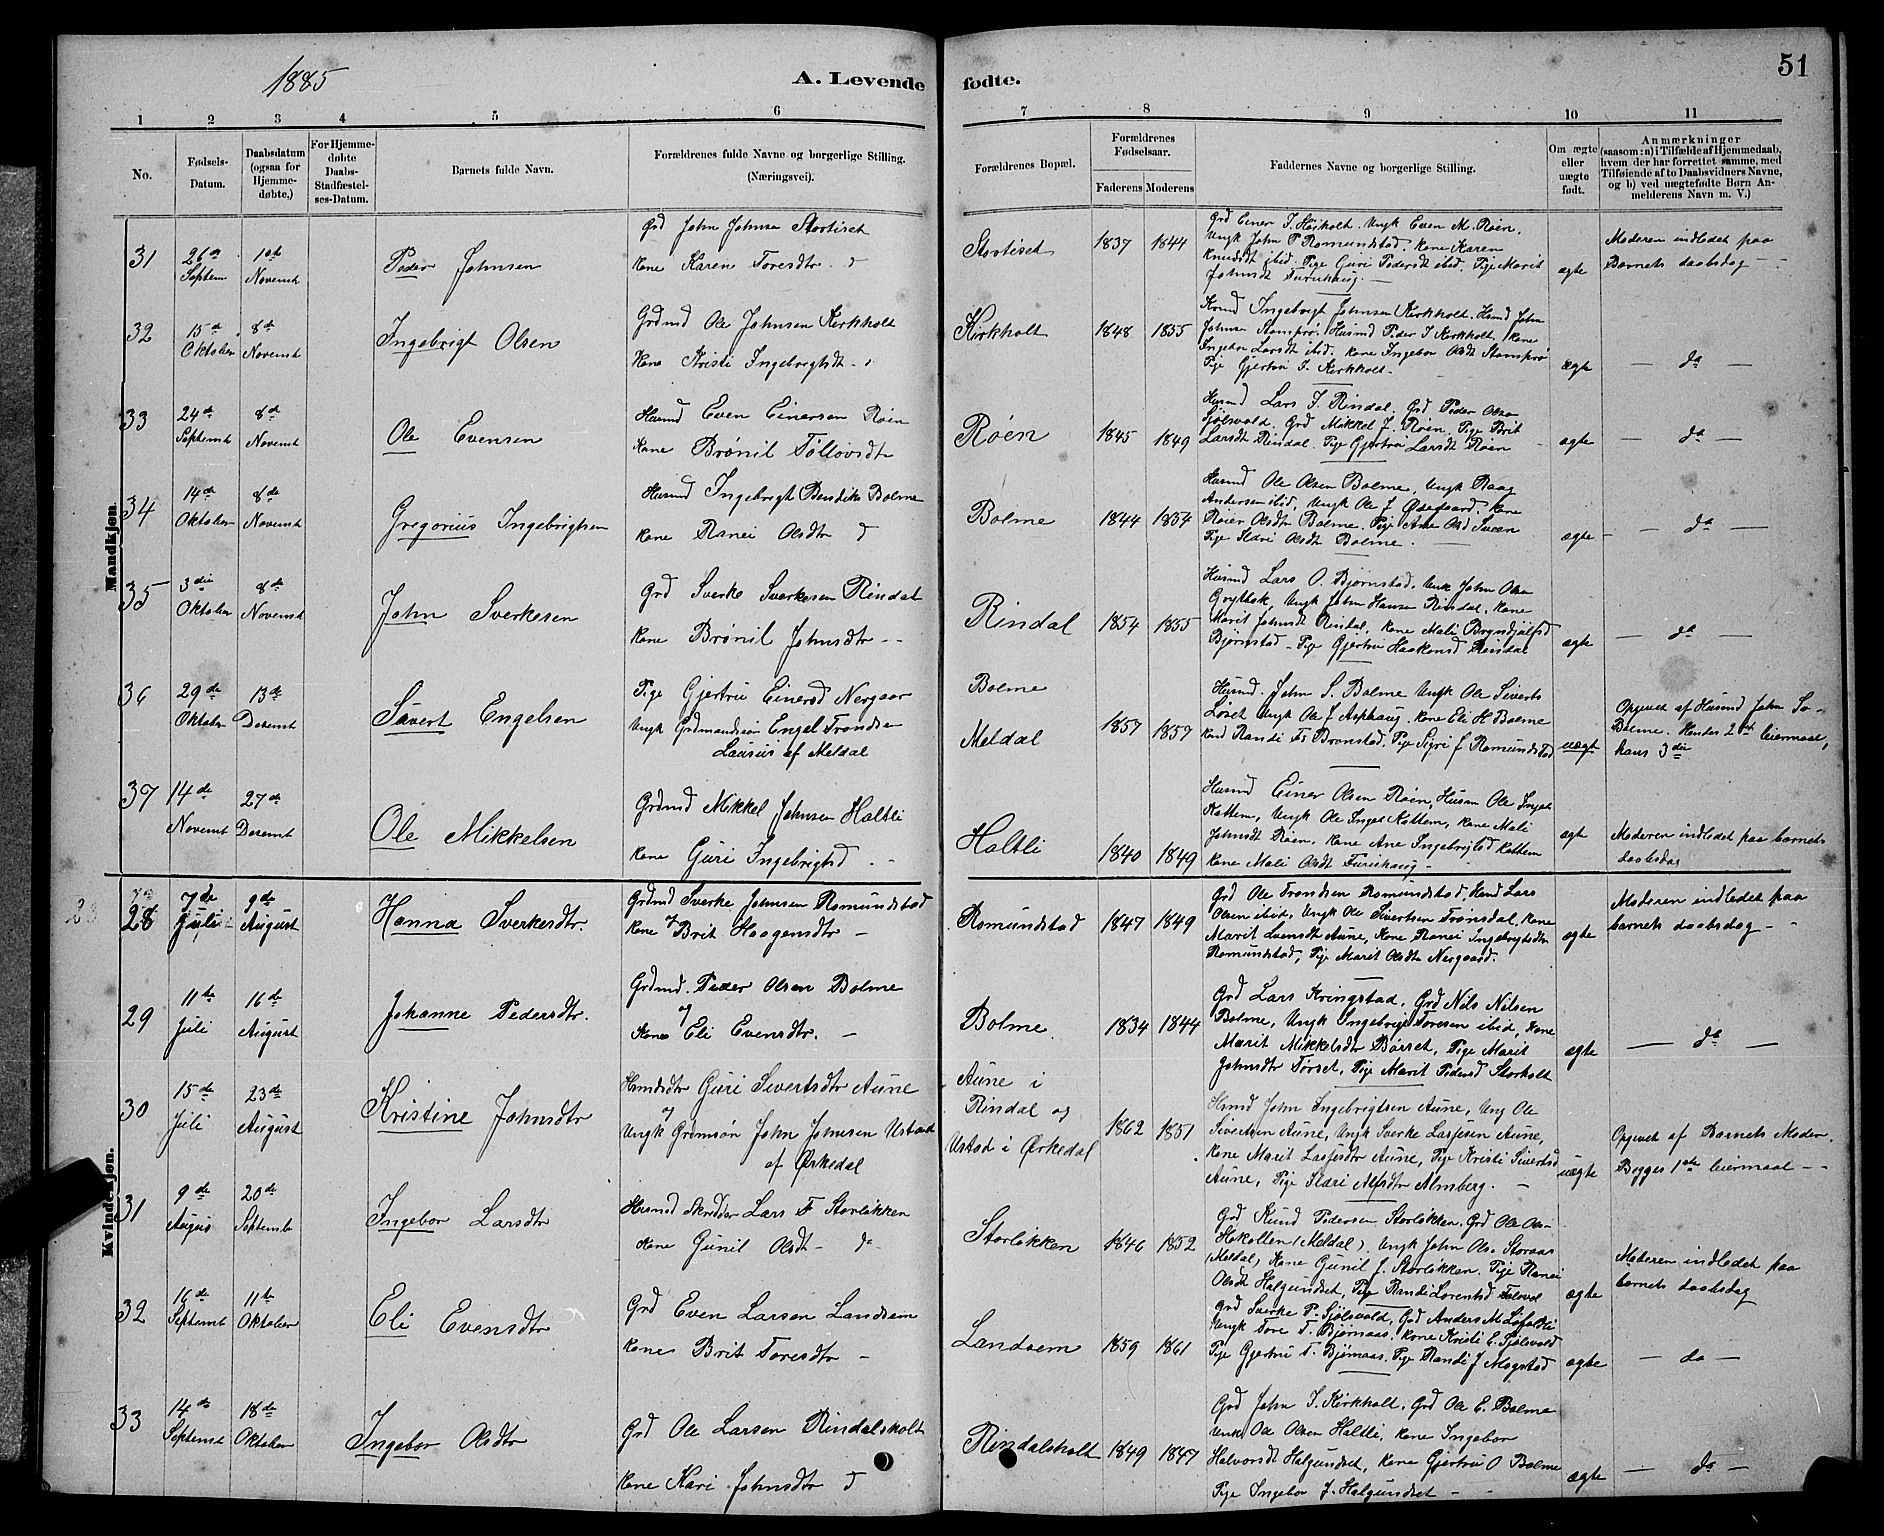 1885
A. Levende fødte.
51
1 2 3 4 5 6 7 8 9 10 11
No.
Fødsels-Datum.
Daabsdatum (ogsaa for Hjemme-døbte,)
For Hjemme-døbte Daabs-Stadfæstel-ses-Datum.
Barnets fulde Navn.
Forældrenes fulde Navne og borgerlige Stilling. (Næringsvei).
Forældrenes Bopæl.
Forældrenes Fødselsaar.
Faderens Moderens
Faddernes Navne og borgerlige Stilling.
Om ægte eller uægte født.
Anmærkninger (saasom: a) i Tilfælde af Hjemmedaab, hvem der har forrettet samme, med Tilføiende af to Daabsvidners Navne, og b) ved uægtefødte Børn An-melderens Navn m. V.)
Mandkjøn.
31
26de Septem
1ste Novemt
Peder Johnsen
Grd John Johnsen Stortiset
Kone Karen Toresdtr d
Stortiset
1837 1844
Grd Einer J. Høikolt. Ungk Even M. Røen.
Ungk John P Romundstad, Kone Karen
Knudsdt ibid. Pige Guri Pedersdt ibid. Pige Marit
Johnsdt Furuhaug.
ægte
Moderen indledet paa
Barnets daabsdag
32
15de Oktober
8de Novemt
Ingebrigt Olsen
Grdmd Ole Johnsen Kirkholt
Kone Kristi Ingebrigtsdt d
Kirkholt
1848 1855
Ingebrigt Johnsen Kirkholt. Husmd John
Johnsen Stomprø, Husmd Peder J Kirkholt, Kone
Ingebor Larsdt ibid. Kone Ingebor Olsdt Stomprø
Pige Gjertru J. Kirkholt
ægte
da
33
24de Septemt
8de Novemt
Ole Evensen
Husmd Even Einersen Røen
Kone Brønil Tøllovsdtr
Røen
1845 1849
Husmd Lars J. Rindal. Grd Peder Olsen
Sjølsvold. Grd Mikkel J. Røen. Pige Brit
Larsdt Rindal. Pige Gjertru Larsdt Røen
ægte
da
34
14de Oktober
8de Novemt
Gregorius Ingebrigtsen
Husmd Ingebrigt Bendiks Bolme
Kone Ranei Olsdtr d
Bolme
1844 1854
Husmd Ole Olsen Bolme, Ungk Haag
Andersen ibid, Ungk Ole J Ødegaard. Kone
Olsdtr Bolme. Pige Ane Olsd
Pige Olsdt Bolme.
ægte
da
35
3die Oktober
8de Novemt
John Sverkesen
Grd Sverke Sverkesen Rindal
Kone Brønil Johnsdtr
Rindal
1854 1855
Husmd Lars O. Bjørnstad. Ungk John Olsen
Grytbak, Ungk John Hansen Rindal, Kone
Marit Johnsdt Rindal, Kone Mali Brynjolfsd
Bjørnstad. Pige Gjertru Haakonsd Rindal
ægte
da
36
29de Oktober
13de Decemt
Sivert Engelsen
Pige Gjertru Einersd Nergaar
Ungk Grdmandssøn Engel Trondsen
af Meldal
Bolme
Meldal
1857 1857
Husmd. John S. Bolme Ungk Ole Siverts
Løset Ungk Ole J Asphaug. Kone Eli H Bolme
Randi Brønstad, Pige Sigri J Romundstad
uægt
Opgivet af Husmd John S.
Bolme. Hendes 2det leiermaal,
hans 3die
37
14de Novemt
27de Decemt
Ole Mikkelsen
Grdmd Mikkel Johnsen Haltli
Kone Guri Ingebrigtsd
Haltli
1840 1849
Husmd Einer Olsen Røen, Husm Ole
Kattem, Ungk Ole Kattem, Kone Mali
Johnsdt Røen. Kone Ane Ingebrigtsd Kattem
Kone Mali Olsdt Furuhaug
ægt
Moderen indledet paa barnets
daabsdag
Kvindekjøn.
28
7de Juli
9de August
Hanna Sverkesdtr.
Grdmd Sverke Johnsen Romundstad
Kone Brit Haagensdtr
Romundstad
1847 1849
Grd Ole Trondsen Romundstad, Husmd Lars
Olsen ibid. Ungk Ole Sivertsen Trønsdal, Kone
Marit Svensdt Aune, Kone Ranei Ingebrigtsdtr
Romundstad, Pige Marit Olsdt Nergaard.
ægte
Moderen indledet paa
barnets daabsdag
29
11te Juli
16de August
Johanne Pedersdtr.
Grdmd. Peder Olsen Bolme
Kone Eli Evensdtr.
Bolme
1834 1844
Grd Lars Kringstad. Grd Nils Nilsen
Bolme, Ungk Ingebrigt Toresen ibid, Kone
Marit Mikkelsdtr Børset, Pige Marit
Johnsdtr Tørset, Pige Marit Pedersd Storholt
ægte
da
30
15de Juli
23de August
Kristine Johnsdtr
Husmdsdtr Guri Sivertsdtr Aune
Ungk Grdmsøn John Johnsen Ustad
af Ørkedal
Aune i
Rindal og
Ustad i Ørkedal
1862 1851
Husmd John Ingebrigtsen Aune, Ung Ole
Sivertsen Aune, Ungk Sverke Larsesen Aune,
Kone Marit Larsesdtr Aune, Pige Kristi Sivertsd
Aune, Pige Alfsdtr Almberg.
uægte
Opgivet af Barnets Moder.
Begges 1ste leiermaal
31
9de August
20de Septembr
Ingebor Larsdtr
Husmd Skrædder Lars F Storløkken
Kone Gunil Olsdt da
Storløkken
1846 1852
Grd Knud Pedersen Storløkken, Grd Ole
Hokollen (Meldal). Ungk John Ols. Storaas
Meldal, Kone Gunil J. Storløkken. Pige Ranei
Olsdt Halgunset, Pige Randi Lorentsd
ægte
Moderen indledet paa
barnets daabsdag
32
16de Septembt
11te Oktober
Eli Evensdtr
Grd Even Larsen Landsem
Kone Brit Toresdtr
Landsem
1859 1861
Grd Sverke P. Sjølsvold, Grd Anders M
Ungk Tore T. Bjørnaas. Kone Kristi E. Sjølsvold
Pige Gjertru T. Bjørnaas. Pige Randi J Mogstad
ægte
da
33
14de Septemt
18de Oktober
Ingebor Olsdtr
Grd Ole Larsen Rindalsholt
Kone Kari Johnsdtr d
Rindalsholt
1849 1847
Grd John J. Kirkholt, Grd Ole E. Bolme
Ungk Ole Olsen Haltli, Kone Ingebor
Halvorsdt Halgunset, Kone Gjertru O Bolme
Pige Ingebor J. Halgunset
ægte
da